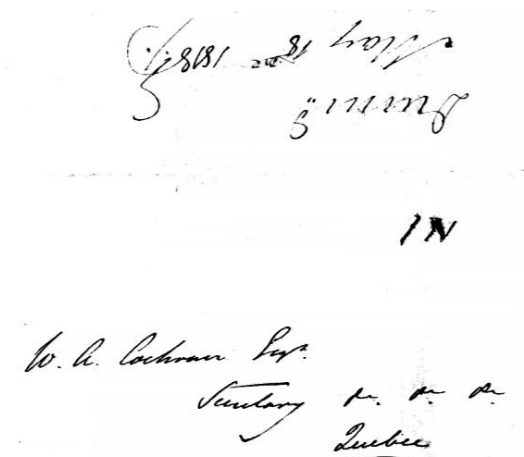 May 18th 1818
IN
W. A. Cochran Esqr.
Secretary &c. &c &c
Quebec